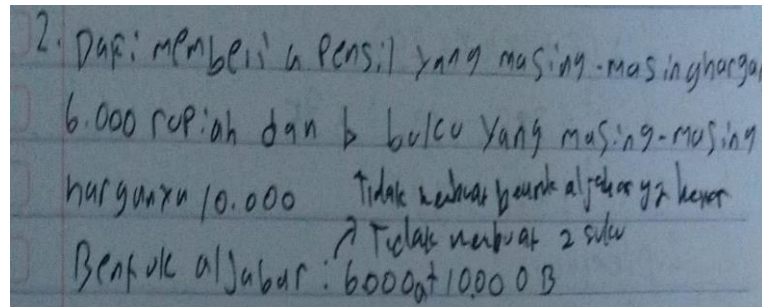 2. Dafi membeli a Pensil yang masing-masing harga
6.000 rupiah dan b buku yang masing-masing
harganya 10.000 Tidak membuat bentuk aljabar yg benar
↗ Tidak membuat 2 suku
Bentuk aljabar : 6000a + 10.000 B